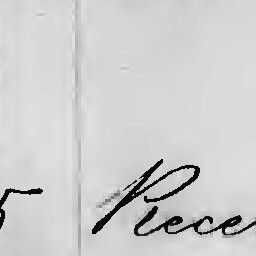 5 Piece